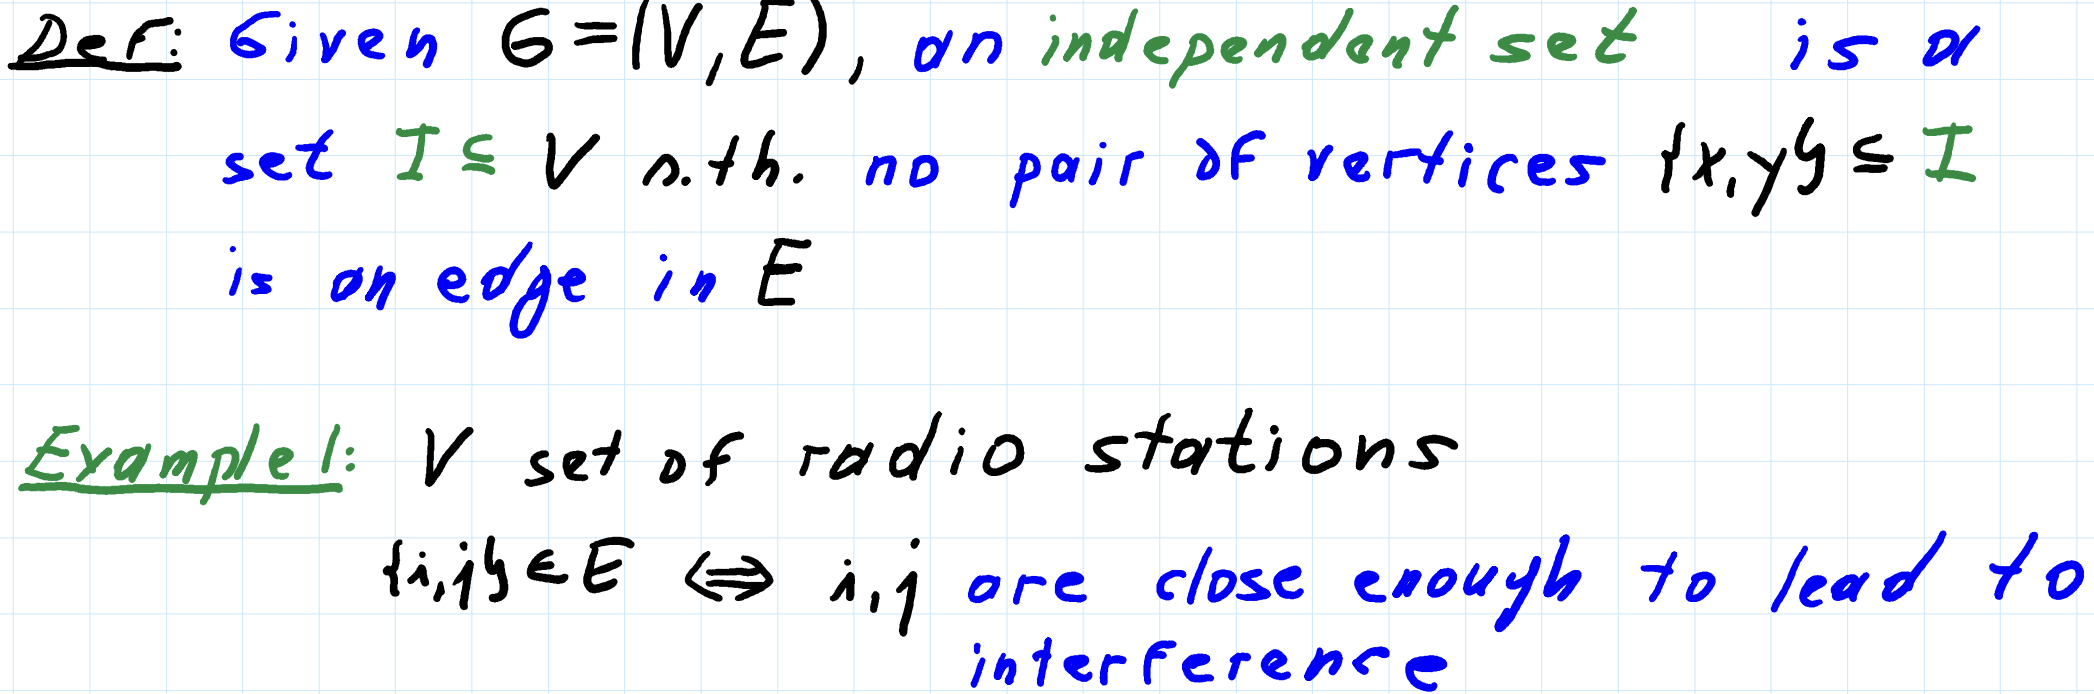 Def: Given G=(V,E), an independent set is a
set I ⊆ V s.th. no pair of vertices {x,y} ⊆ I
is an edge in E
Example 1: V set of radio stations
{i,j} ∈ E ⇔ i,j are close enough to lead to
interference